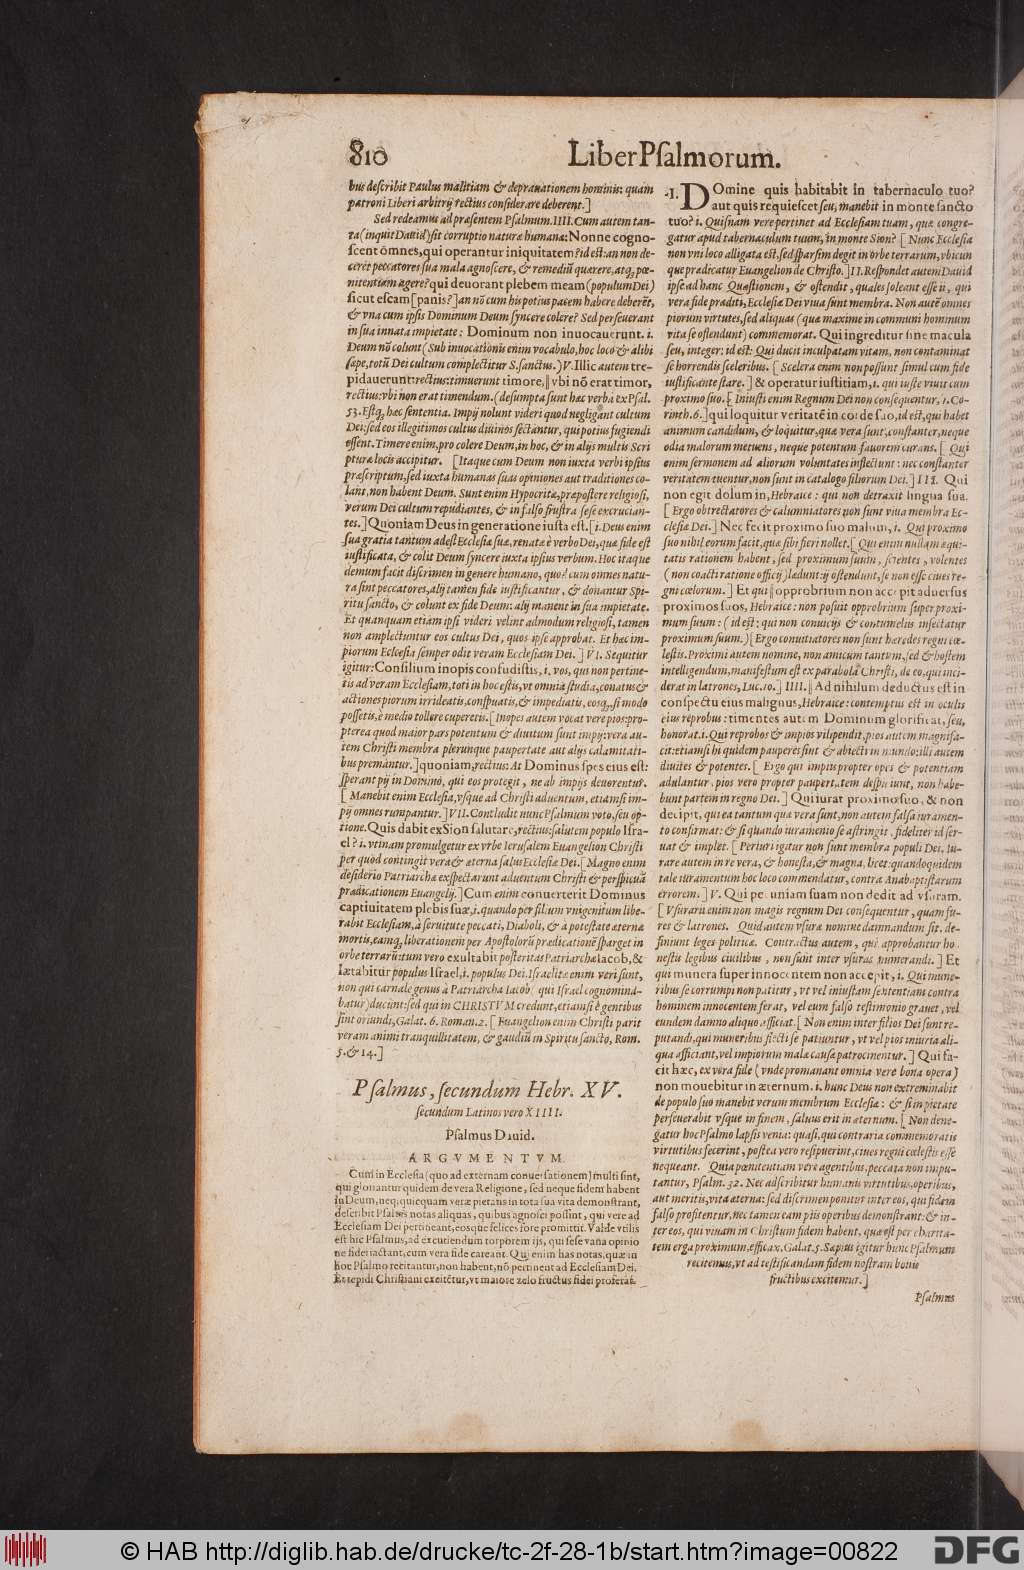 810
Liber Psalmorum.
bus describit Paulus malitiam & deprauationem hominis: quam
patroni Liberi arbitrij rectius considerare deberent.]
Sed redeamus ad præsentem Psalmum. IIII. Cum autem tan-
ta (inquit Dauid) sit corruptio naturæ humanæ: Nonne cogno-
scent ōmnes, qui operantur iniquitatem? id est: an non de-
ceret peccatores sua mala agnoscere, & remediū quærere, atq́, pœ-
nitentiam agere? qui deuorant plebem meam (populum Dei)
sicut escam [panis?] an nō cum his potius pacem habere deberēt,
& vna cum ipsis Dominum Deum syncere colere? Sed perseuerant
in sua innata impietate: Dominum non inuocauerunt. i.
Deum nō colunt (Sub inuocationis enim vocabulo, hoc loco & alibi
sæpe, totū Dei cultum complectitur S. sanctus.) V. Illic autem tre-
pidauerunt: rectius: timuerunt timore, || vbi nō erat timor,
rectius: vbi non erat timendum. (desumpta sunt hæc verba ex Psal.
53. Estq́, hæc sententia. Impij nolunt videri quod negligant cultum
Dei: sed eos illegitimos cultus diuinos sectantur, qui potius fugiendi
essent. Timere enim, pro colere Deum, in hoc, & in alijs multis Scri
pturæ locis accipitur. [Itaque cum Deum non iuxta verbi ipsius
præscriptum, sed iuxta humanas suas opiniones aut traditiones co-
lant, non habent Deum. Sunt enim Hypocritæ, præpostere religiosi,
verum Dei cultum repudiantes, & in falso frustra sese excrucian-
tes.] Quoniam Deus in generatione iusta est. [i. Deus enim
sua gratia tantum adest Ecclesiæ suæ, renatæ è verbo Dei, quæ fide est
iustificata, & colit Deum syncere iuxta ipsius verbum. Hoc itaque
demum facit discrimen in genere humano, quod cum omnes natu-
ra sint peccatores, alij tamen fide iustificantur, & donantur Spi-
ritu sancto, & colunt ex fide Deum: alij manent in sua impietate.
Et quanquam etiam ipsi videri velint admodum religiosi, tamen
non amplectuntur eos cultus Dei, quos ipse approbat. Et hæc im-
piorum Ecclesia semper odit veram Ecclesiam Dei.] VI. Sequitur
igitur: Consilium inopis confudistis, i. vos, qui non pertine-
tis ad veram Ecclesiam, toti in hoc estis, vt omnia studia, conatus &
actiones piorum irrideatis, conspuatis, & impediatis, eosq́, si modo
possetis, è medio tollere cuperetis. [Inopes autem vocat vere pios: pro-
pterea quod maior pars potentum & diuitum sunt impij: vera au-
tem Christi membra plerunque paupertate aut alijs calamitati-
bus premantur.] quoniam, rectius: At Dominus spes eius est:
sperant pij in Domino, qui eos protegit, ne ab impijs deuorentur.
[Manebit enim Ecclesia, vsque ad Christi aduentum, etiamsi im-
pij omnes rumpantur.] VII. Concludit nunc Psalmum voto, seu op-
tione. Quis dabit ex Sion salutare, rectius: salutem populo Isra-
el? i. vtinam promulgetur ex vrbe Ierusalem Euangelion Christi
per quod contingit vera & æterna salus Ecclesiæ Dei. [Magno enim
desiderio Patriarchæ exspectarunt aduentum Christi & perspicuā
prædicationem Euangelij.] Cum enim conuerterit Dominus
captiuitatem plebis suæ, i. quando per filium vnigenitum libe-
rabit Ecclesiam, à seruitute peccati, Diaboli, & à potestate æternæ
mortis, eamq́, liberationem per Apostolorū prædicationē sparget in
orbe terrarū: tum vero exultabit posteritas Patriarchæ Iacob, &
lætabitur populus Israel, i. populus Dei. Israelitæ enim veri sunt,
non qui carnale genus à Patriarcha Iacob (qui Israel cognomina-
batur) ducunt: sed qui in CHRISTVM credunt, etiamsi è gentibus
sint oriundi, Galat. 6. Roman. 2. [Euangelion enim Christi parit
veram animi tranquillitatem, & gaudiū in Spiritu sancto, Rom.
5. & 14.]
Psalmus, secundum Hebr. XV.
secundum Latinos vero XIIII.
Psalmus Dauid.
ARGVMENTVM.
Cum in Ecclesia (quo ad externam conuersationem) multi sint,
qui gloriantur quidem de vera Religione, sed neque fidem habent
in Deum, neq; quicquam veræ pietatis in tota sua vita demonstrant,
describit Psalmus notas aliquas, quibus agnosci possint, qui vere ad
Ecclesiam Dei pertineant, eosque felices fore promittit. Valde vtilis
est hic Psalmus, ad excutiendum torporem ijs, qui sese vana opinio
ne fidei iactant, cum vera fide careant. Qui enim has notas, quæ in
hoc Psalmo recitantur, non habent, nō pertinent ad Ecclesiam Dei.
Et tepidi Christiani excitētur, vt maiore zelo fructus fidei proferāt.
I. DOmine quis habitabit in tabernaculo tuo?
aut quis requiescet seu, manebit in monte sancto
tuo? i. Quisnam vere pertinet ad Ecclesiam tuam, quæ congre-
gatur apud tabernaculum tuum, in monte Sion? [Nunc Ecclesia
non vni loco alligata est, sed sparsim degit in orbe terrarum, vbicun
que prædicatur Euangelion de Christo.] II. Respondet autem Dauid
ipse ad hanc Quæstionem, & ostendit, quales soleant esse ij, qui
vera fide præditi, Ecclesiæ Dei viua sunt membra. Non autē omnes
piorum virtutes, sed aliquas (quæ maxime in communi hominum
vita se ostendunt) commemorat. Qui ingreditur sine macula
seu, integer: id est: Qui ducit inculpatam vitam, non contaminat
se horrendis sceleribus. [Scelera enim non possunt simul cum fide
iustificante stare.] & operatur iustitiam, i. qui iuste viuit cum
proximo suo. [Iniusti enim Regnum Dei non consequentur, 1. Co-
rinth. 6.] qui loquitur veritatē in corde suo, id est, qui habet
animum candidum, & loquitur, quæ vera sunt, constanter, neque
odia malorum metuens, neque potentum fauorem curans. [Qui
enim sermonem ad aliorum voluntates inflectunt: nec constanter
veritatem tuentur, non sunt in catalogo filiorum Dei.] III. Qui
non egit dolum in, Hebraice: qui non detraxit lingua sua.
[Ergo obtrectatores & calumniatores non sunt viua membra Ec-
clesiæ Dei.] Nec fecit proximo suo malum, i. Qui proximo
suo nihil eorum facit, quæ sibi fieri nollet. [Qui enim nullam æqui-
tatis rationem habent, sed proximum suum, scientes, volentes
(non coacti ratione officij) lædunt: ij ostendunt, se non esse ciues re-
gni cœlorum.] Et qui || opprobrium non accepit aduersus
proximos suos, Hebraice: non posuit opprobrium super proxi-
mum suum: (id est: qui non conuicijs & contumelijs insectatur
proximum suum.) [Ergo conuitiatores non sunt hæredes regni cœ-
lestis. Proximi autem nomine, non amicum tantum, sed & hostem
intelligendum, manifestum est ex parabola Christi, de eo, qui inci-
derat in latrones, Luc. 10.] IIII. || Ad nihilum deductus est in
conspectu eius malignus, Hebraice: contemptus est in oculis
eius reprobus: timentes autem Dominum glorificat, seu,
honorat. i. Qui reprobos & impios vilipendit, pios autem magnifa-
cit: etiamsi hi quidem pauperes sint & abiecti in mundo: illi autem
diuites & potentes. [Ergo qui impijs propter opes & potentiam
adulantur, pios vero propter paupertatem despiciunt, non habe-
bunt partem in regno Dei.] Qui iurat proximo suo, & non
decipit, qui ea tantum quæ vera sunt, non autem falsa iuramen-
to confirmat: & si quando iuramento se astringit, fideliter id ser-
uat & implet. [Periuri igitur non sunt membra populi Dei. Iu-
rare autem in re vera, & honesta, & magna, licet: quandoquidem
tale iuramentum hoc loco commendatur, contra Anabaptistarum
errorem.] V. Qui pecuniam suam non dedit ad vsuram.
[Vsurarij enim non magis regnum Dei consequentur, quam fu-
res & latrones. Quid autem vsuræ nomine damnandum sit, de-
finiunt leges politicæ. Contractus autem, qui approbantur ho
nestis legibus ciuilibus, non sunt inter vsuras numerandi.] Et
qui munera super innocentem non accepit, i. Qui mune-
ribus se corrumpi non patitur, vt vel iniustam sententiam contra
hominem innocentem ferat, vel eum falso testimonio grauet, vel
eundem damno aliquo afficiat. [Non enim inter filios Dei sunt re-
putandi, qui muneribus flecti se patiuntur, vt vel pios iniuria ali-
qua afficiant, vel impiorum malæ causæ patrocinentur.] Qui fa-
cit hæc, ex vera fide (vnde promanant omnia vere bona opera)
non mouebitur in æternum. i. hunc Deus non exterminabit
de populo suo manebit verum membrum Ecclesiæ: & si in pietate
perseuerabit vsque in finem, saluus erit in æternum. [Non dene-
gatur hoc Psalmo lapsis venia: quasi, qui contraria commemoratis
virtutibus fecerint, postea vero resipuerint, ciues regni cœlestis esse
nequeant. Quia pœnitentiam vere agentibus, peccata non impu-
tantur, Psalm. 32. Nec adscribitur humanis virtutibus, operibus,
aut meritis, vita æterna: sed discrimen ponitur inter eos, qui fidem
falso profitentur, nec tamen eam piis operibus demonstrant: & in-
ter eos, qui viuam in Christum fidem habent, quæ est per charita-
tem erga proximum, efficax. Galat. 5. Sæpius igitur hunc Psalmum
recitemus, vt ad testificandam fidem nostram bonis
fructibus excitemur.]
Psalmus
© HAB http://diglib.hab.de/drucke/tc-2f-28-1b/start.htm?image=00822
DFG